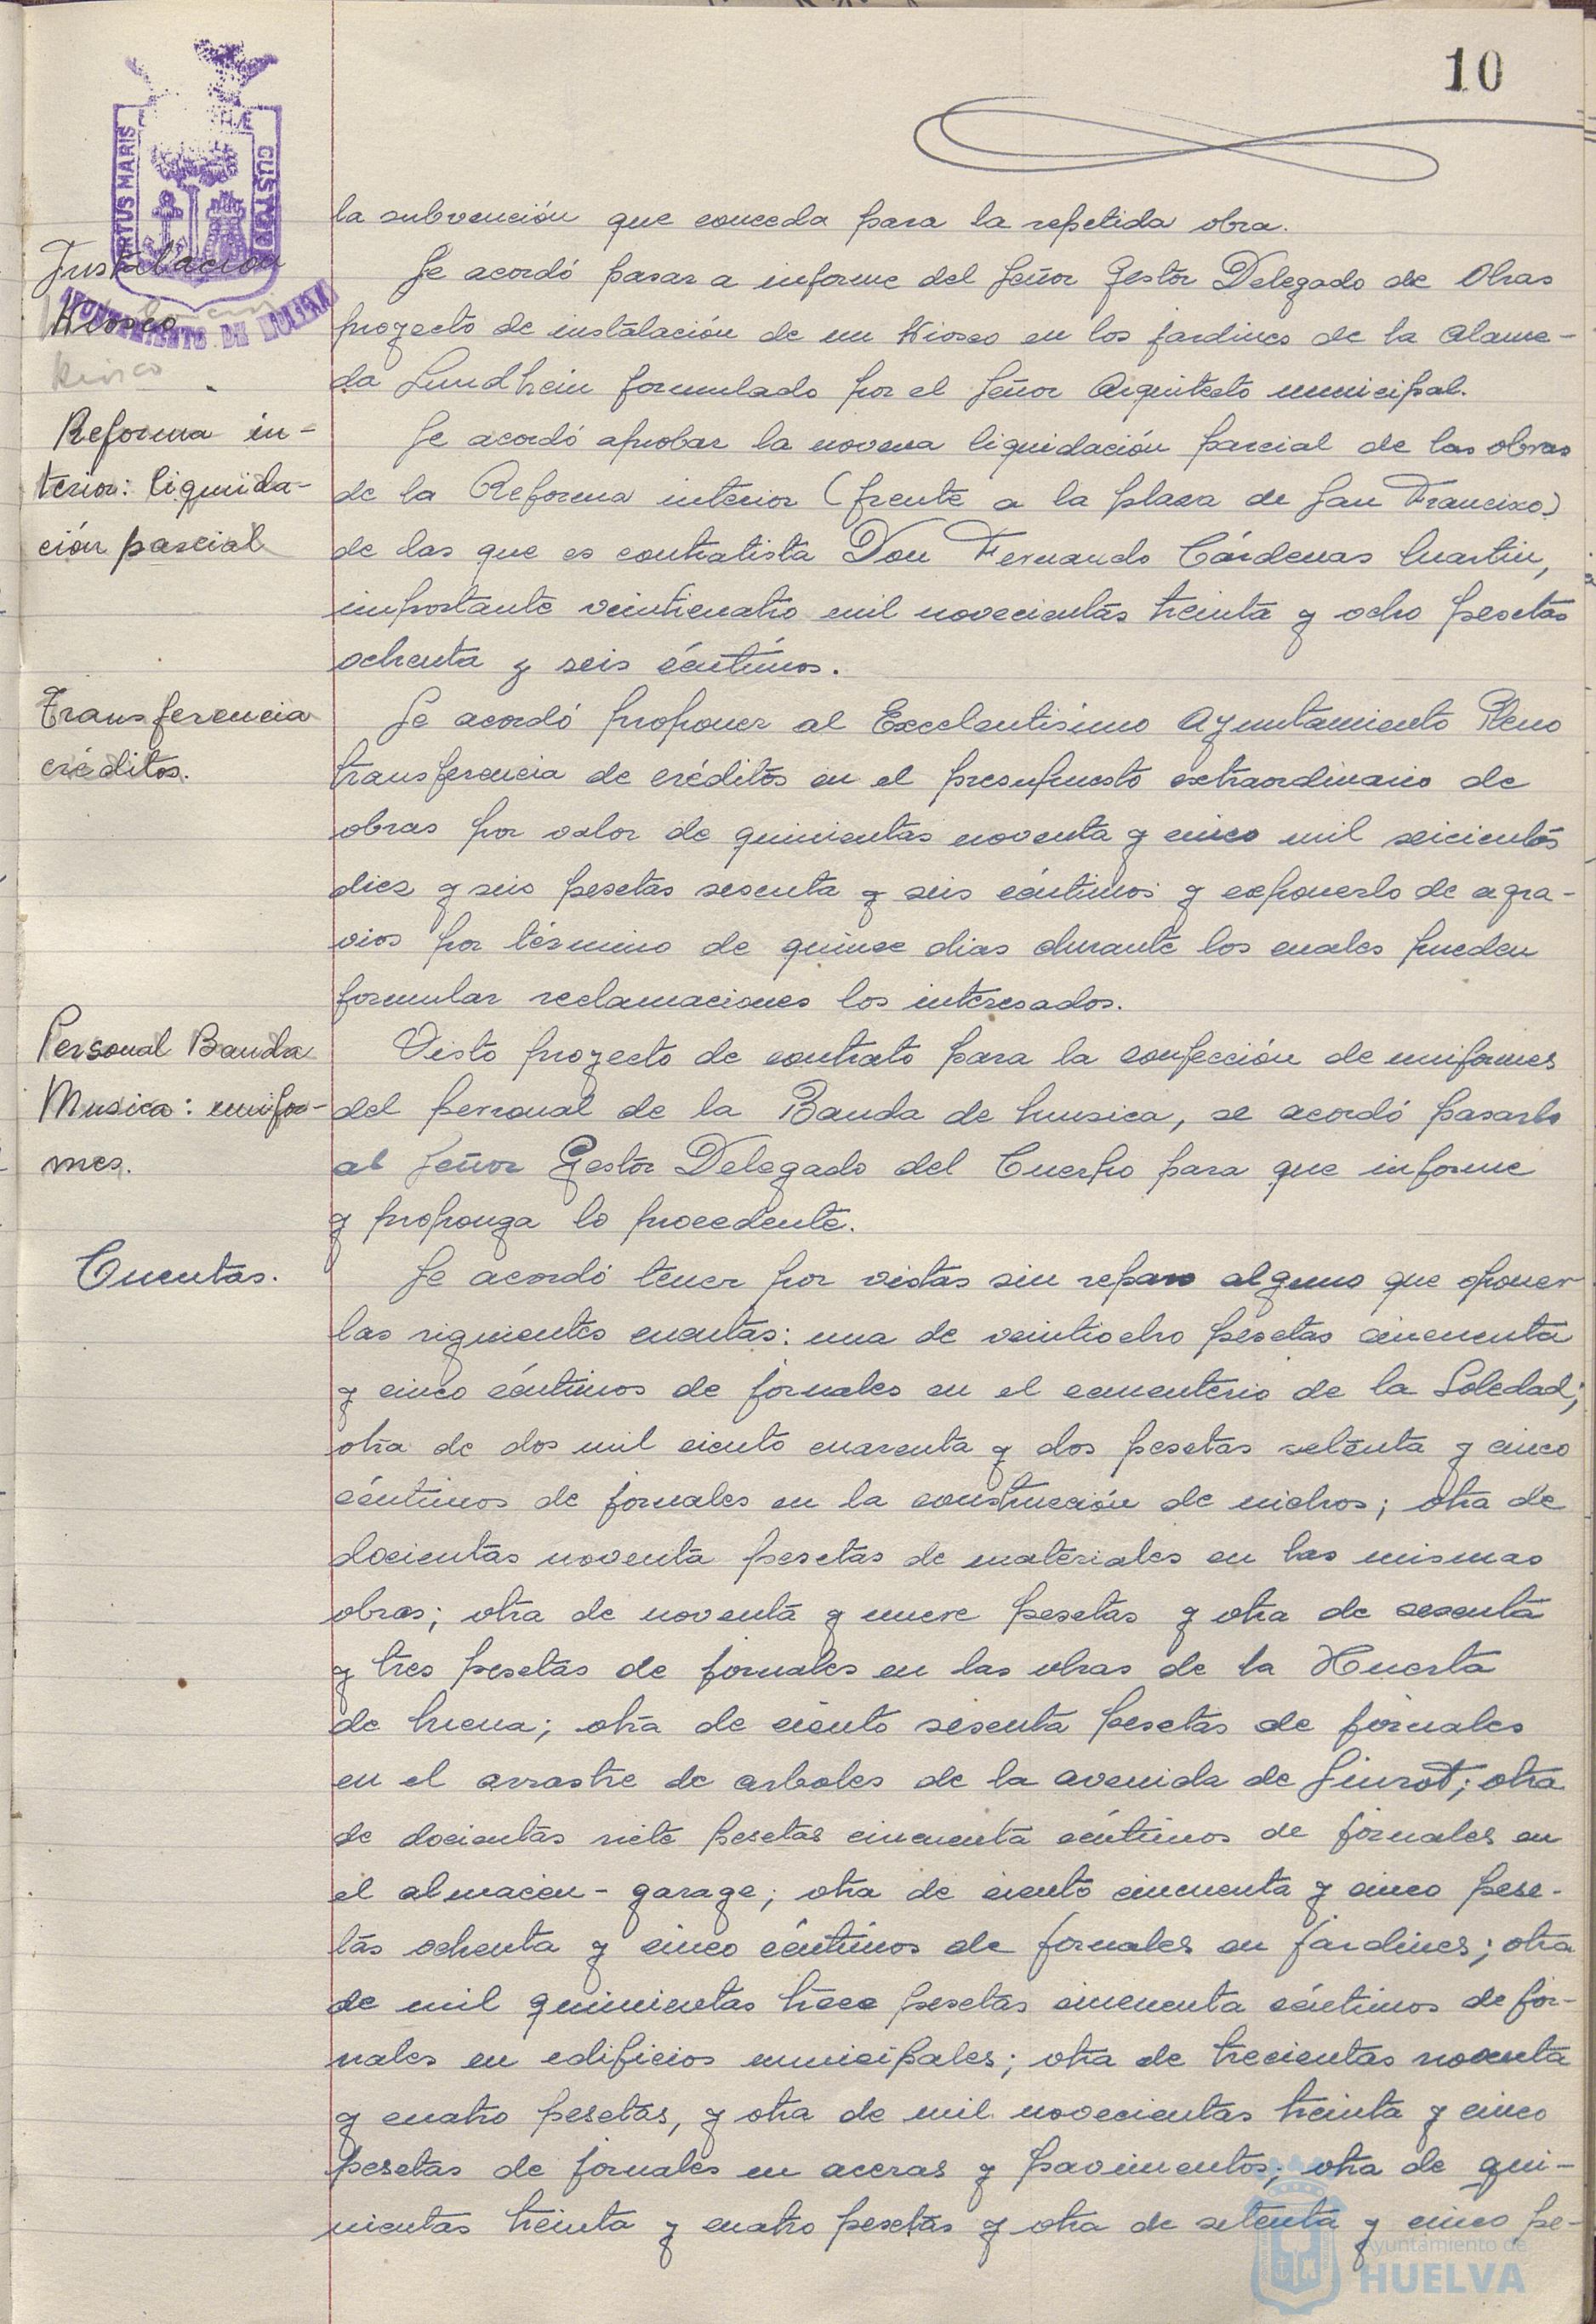 10
PORTUS MARIS
CUSTODIA
AYUNTAMIENTO DE HUELVA
la subvención que conceda para la repetida obra.
Instalación
Kiosco
Kiosco
Se acordó pasar a informe del Señor Gestor Delegado de Obras
proyecto de instalación de un Kiosco en los jardines de la Alame-
da Sundhein formulado por el Señor Arquitecto municipal.
Reforma in-
terior: liquida-
ción parcial
Se acordó aprobar la novena liquidación parcial de las obras
de la Reforma interior (frente a la plaza de San Francisco)
de las que es contratista Don Fernando Cárdenas Martin,
importante veinticuatro mil novecientas treinta y ocho pesetas
ochenta y seis céntimos.
Transferencia
créditos.
Se acordó proponer al Excelentísimo Ayuntamiento Pleno
transferencia de créditos en el presupuesto extraordinario de
obras por valor de quinientas noventa y cinco mil seicientos
diez y seis pesetas sesenta y seis céntimos y exponerlo de agra-
vios por término de quince dias durante los cuales pueden
formular reclamaciones los interesados.
Personal Banda
Musica: unifor-
mes.
Visto proyecto de contrato para la confección de uniformes
del personal de la Banda de musica, se acordó pasarlo
al Señor Gestor Delegado del Cuerpo para que informe
y proponga lo procedente.
Cuentas.
Se acordó tener por vistas sin reparo alguno que oponer
las siguientes cuentas: una de veintiocho pesetas cincuenta
y cinco céntimos de jornales en el cementerio de la Soledad;
otra de dos mil ciento cuarenta y dos pesetas setenta y cinco
céntimos de jornales en la construcción de nichos; otra de
docientas noventa pesetas de materiales en las mismas
obras; otra de noventa y nueve pesetas y otra de sesenta
y tres pesetas de jornales en las obras de la Huerta
de Mena; otra de ciento sesenta pesetas de jornales
en el arrastre de arboles de la avenida de Siurot; otra
de docientas siete pesetas cincuenta céntimos de jornales en
el almacen-garage; otra de ciento cincuenta y cinco pese-
tas ochenta y cinco céntimos de jornales en jardines; otra
de mil quinientas trece pesetas cincuenta céntimos de jor-
nales en edificios municipales; otra de trecientas noventa
y cuatro pesetas, y otra de mil novecientas treinta y cinco
pesetas de jornales en aceras y pavimentos; otra de qui-
nientas treinta y cuatro pesetas y otra de setenta y cinco pe-
Ayuntamiento de
HUELVA